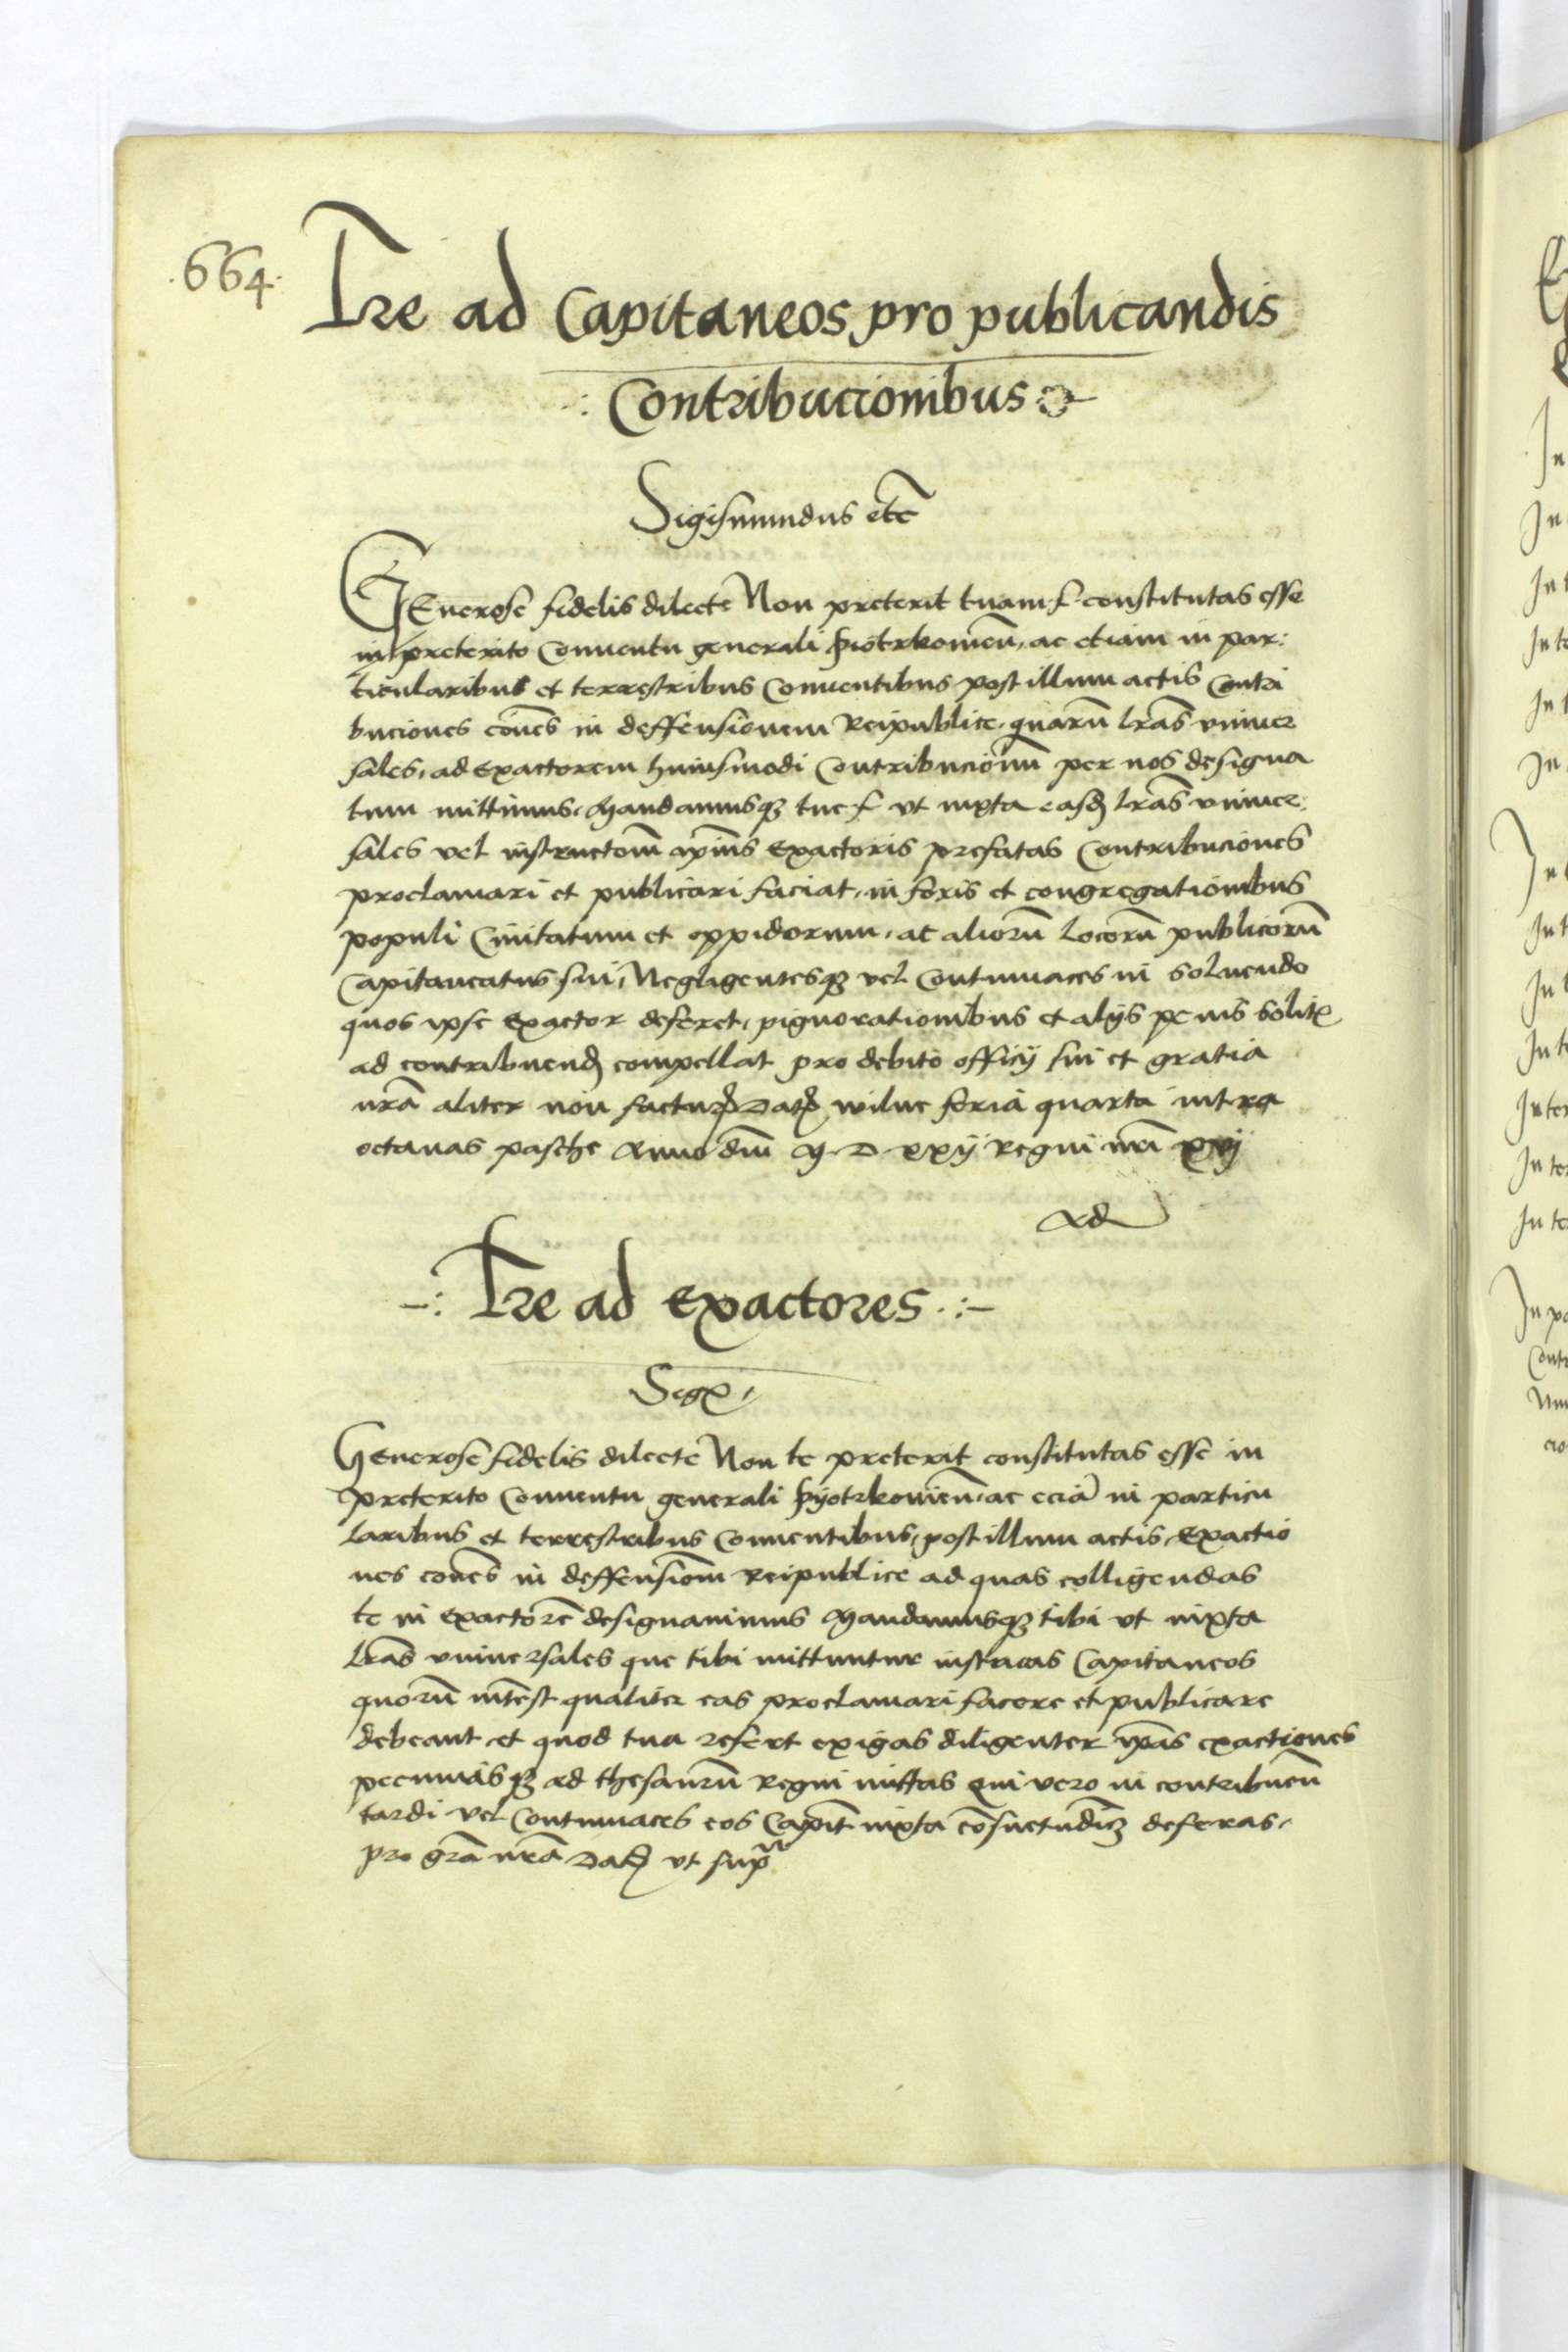 .664.
Lre ad Capitaneos pro publicandis
Contribucionibus
Sigismundus etc̄
GEnerose fidelis dilecte Non preterit tuam f. constitutas esse
in preterito Conuentu generali Piotrkouien̄, ac etiam in par:
ticularibus et terrestribus Conuentibus post illum actis Contri
buciones cōnes in deffensionem Reipublice. quarū lrās vniuer
sales, ad exactorem huiusmodi Contribucionū per nos designa
tum mittimus, Mandamusqꝫ tue f vt iuxta easd lrās vniuer:
sales vel instructōm ip̄ius exactoris prefatas Contribuciones
proclamari et publicari faciat, in foris et congregationibus
populi Ciuitatum et oppidorum, ac aliorū locorū publicorū
Capitaneatus sui, Negligentesqꝫ vel Contumaces in soluendo
quos ipse exactor deferet, pignorationibus et alijs penis solit
ad contribuend compellat pro debito officij sui et gratia
nrā aliter non factur Dat wilne feria quarta intra
octauas pasche Anno dni M. D. xxij Regni nrī xvj
Ad
-:. Lre ad exactores .:-
Sig
Generose fidelis dilecte Non te preterit constitutas esse in
preterito Conuentu generali Pyotrkouien̄, ac eciā in particu
laribus et terrestribus Conuentibus, post illum actis, exactio
nes cōnes in deffensiōm Reipublice ad quas colligendas
te in exactorē designauimus Mandamusqꝫ tibi vt iuxta
lrās vniuersales que tibi mittuntur instruas Capitaneos
quorū intēst qualiter eas proclamari facere et publicare
debeant, et quod tua refert exigas diligenter ip̄as exactiones
pecuniasqꝫ ad thesaurū Regni mittas Qui vero in contribuen̄
tardi vel Contumaces eos Capit̄ iuxta cōsuetudīeꝫ deferas,
pro grā nrā Dat vt supᵃ